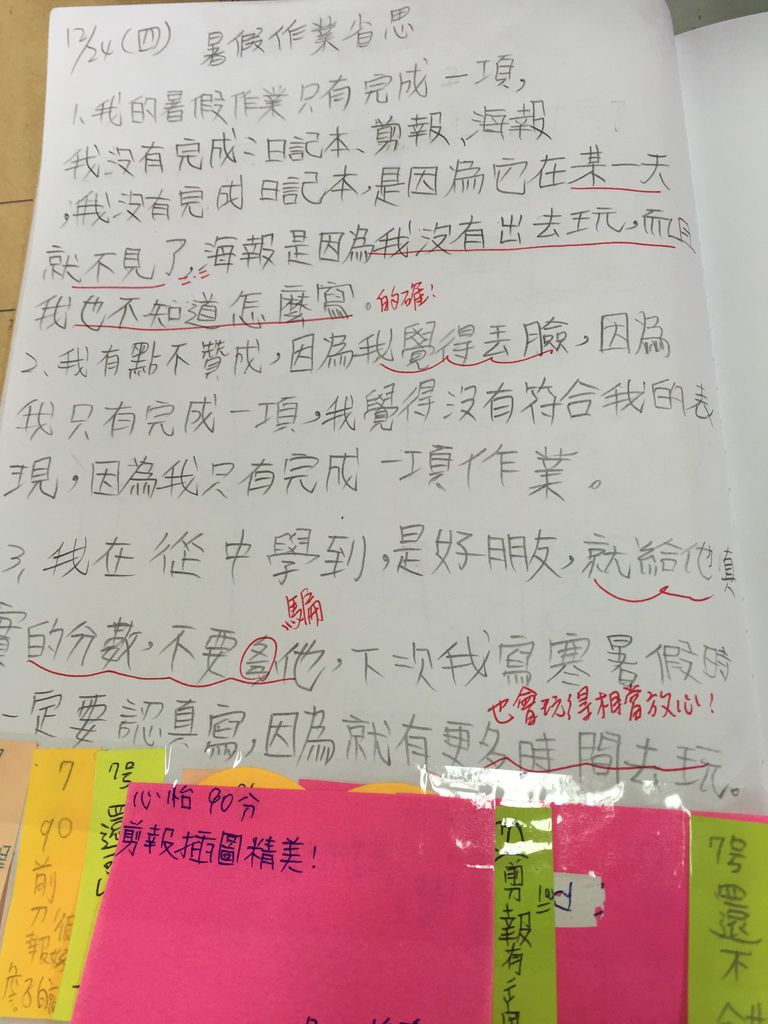 12/24(四) 暑假作業省思
1、我的暑假作業只有完成一項,
我沒有完成:日記本、剪報、海報
,我沒有完成日記本,是因為它在某一天
就不見了,海報是因為我沒有出去玩,而且
我也不知道怎麼寫。的確!
2、我有點不贊成,因為我覺得丟臉,因為
我只有完成一項,我覺得沒有符合我的表
現,因為我只有完成一項作業。
3、我在從中學到,是好朋友,就給他真
實的分數,不要他,下次我寫寒暑假時
騙
一定要認真寫,因為就有更多時間去玩。
也會玩得相當放心!
7
90
剪
報
很好
7号還
心怡 90分
剪報插圖精美!
剪報有
7号還不